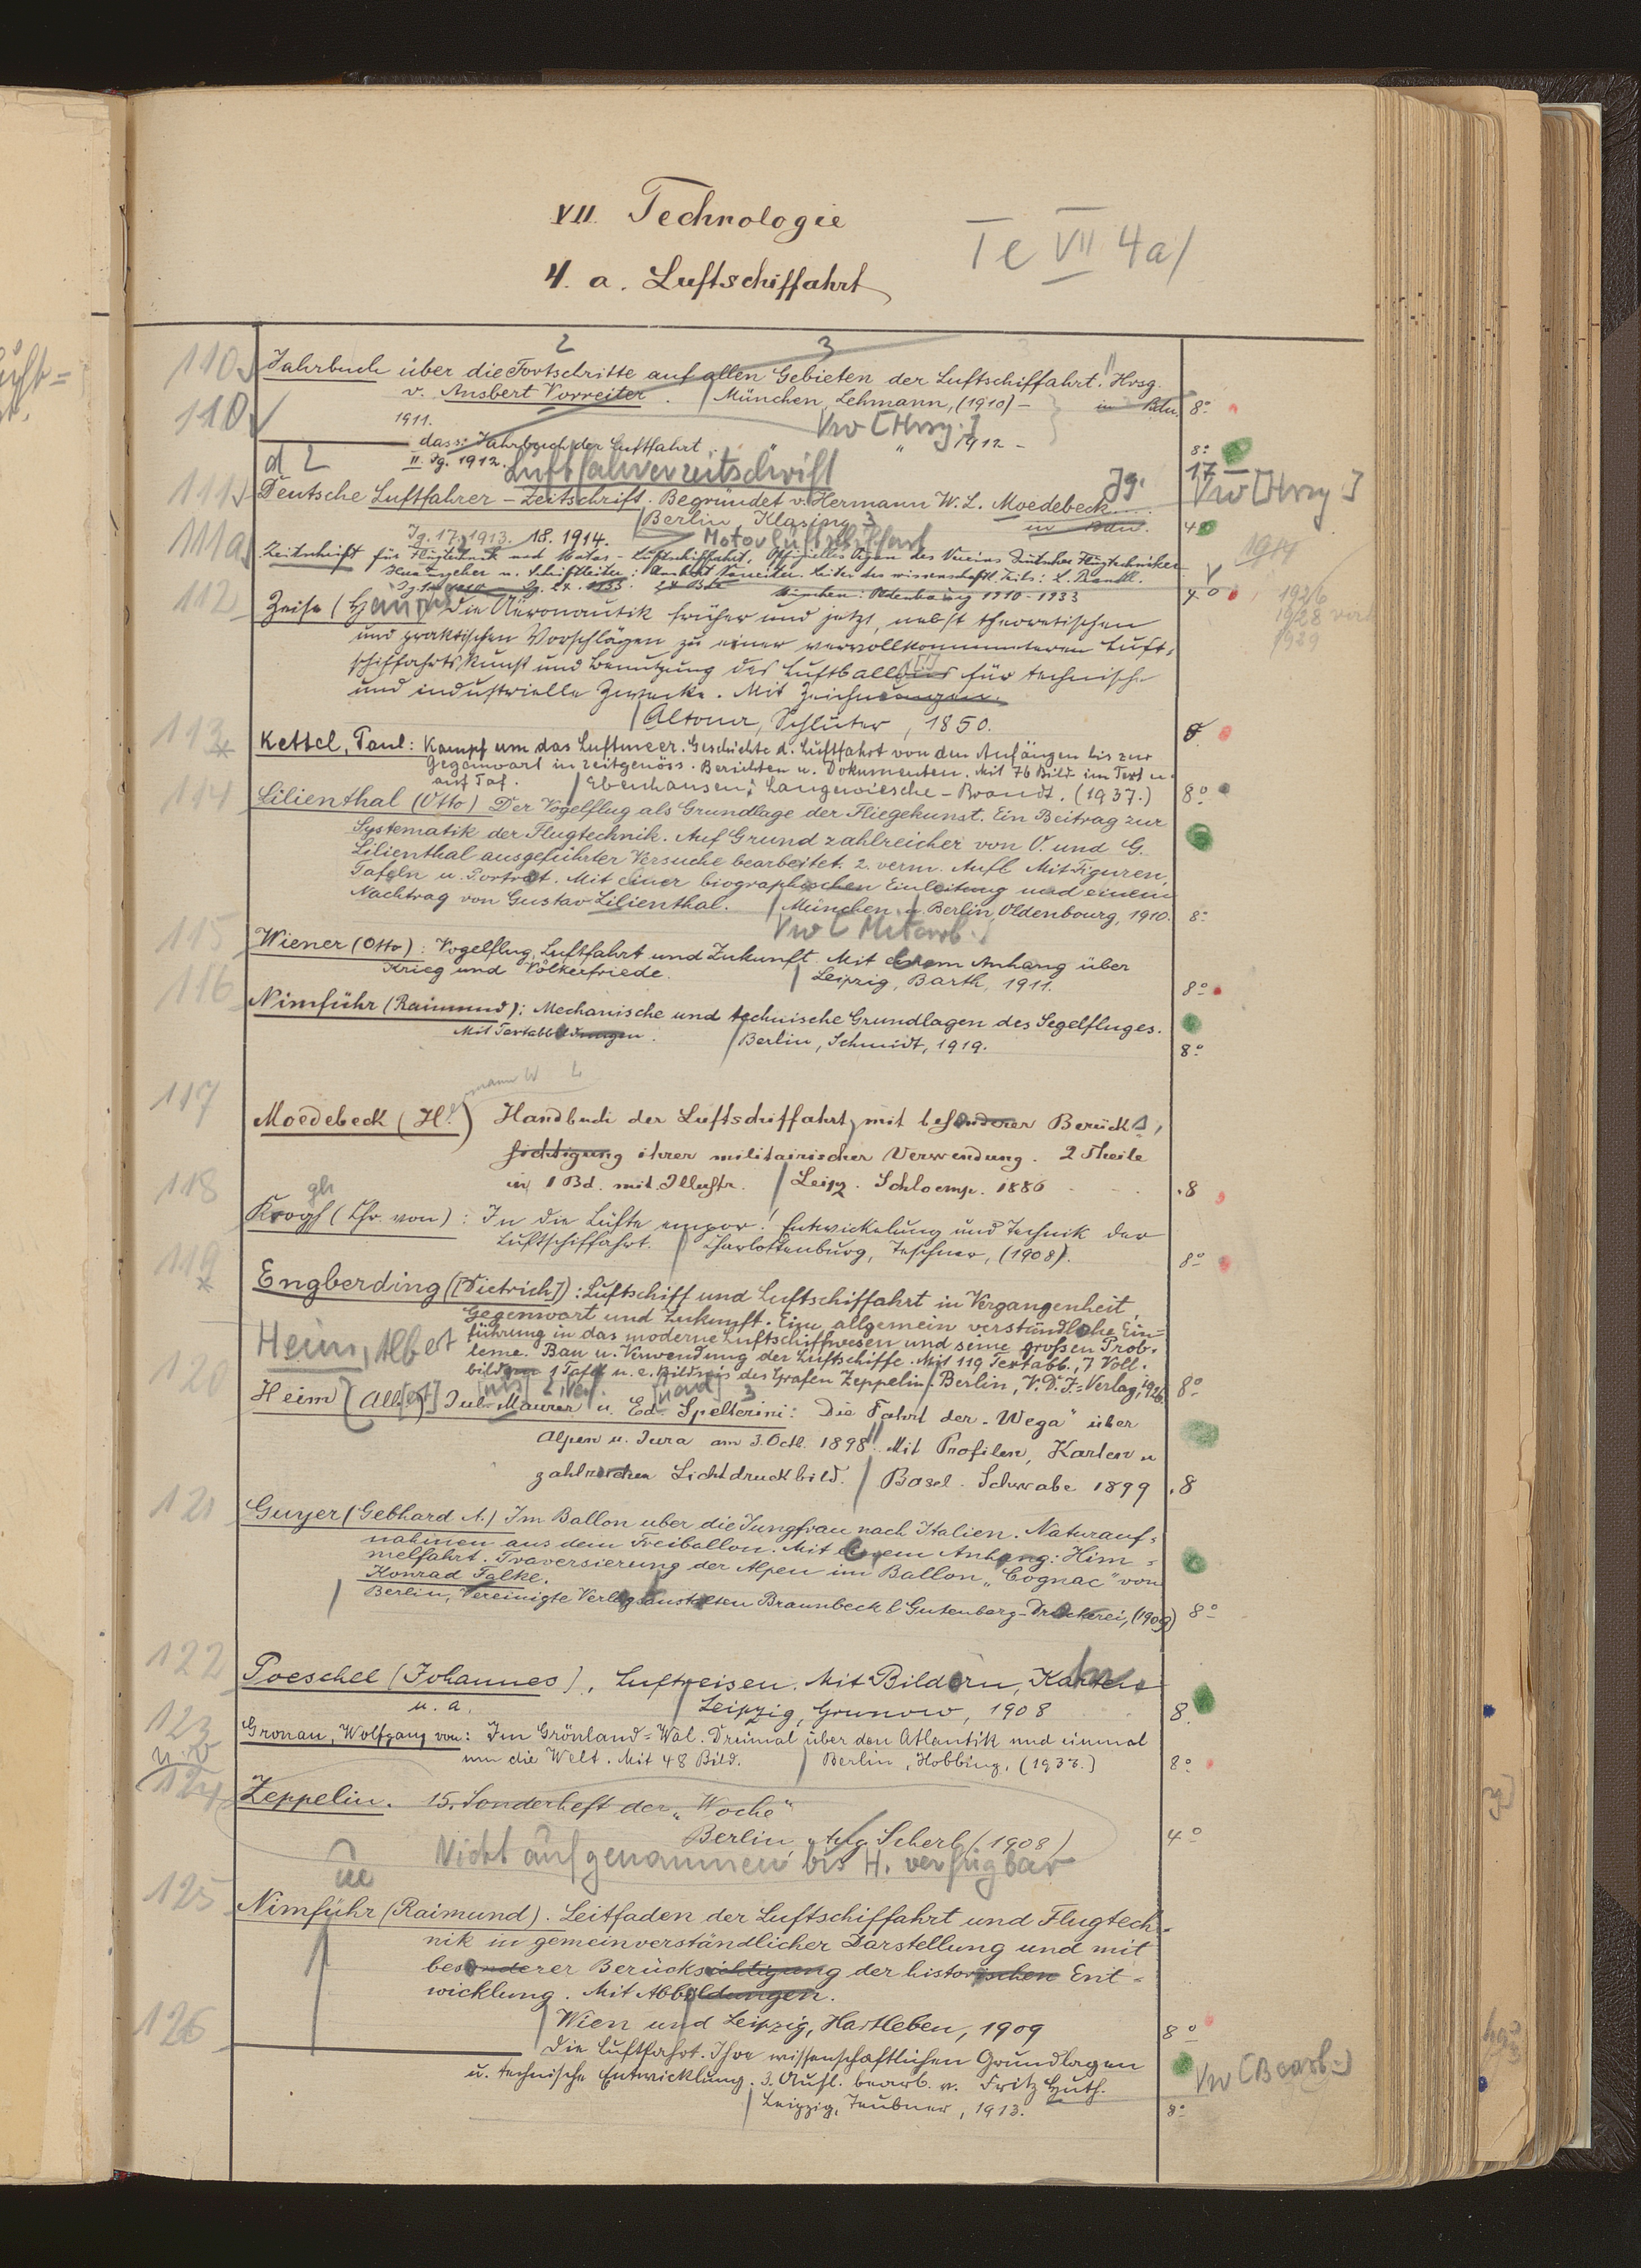 VII. Technologie
Te VII 4a/
4. a. Luftschiffahrt
2 3
110 Jahrbuch über die Fortschritte auf allen Gebieten der Luftschiffahrt. Hrsg.
v. Ansbert Vorreiter. München, Lehmann, (1910) – in Bdn. 8°
110 1911. Vw [Hrsg.]
dass: Jahrbuch der Luftfahrt „ „ 1912 – 8°
II. Jg. 1912. Luftfahrerzeitschrift
111 Deutsche Luftfahrer – Zeitschrift. Begründet v. Hermann W. L. Moedebeck.... Jg. 17 – Vw [Hrsg]
Berlin, Klasing in Bdn. 4°
Jg. 17, 1913. 18. 1914. Motorluftschiffart
111a Zeitschrift für Flugtechnik und Motor – Luftschiffahrt. Offizielles Organ des Vereins Deutscher Flugtechniker 1914
Herausgeber u. Schriftleiter: Ansbert Vorreiter. Leiter des wissenschaftl. Teils: L. Prandtl.
Jg. 1. 1910 – Jg. 24. 1933. 24 Bde München: Oldenbourg 1910-1933 4° 1926
1928
1929
112 Zeise (Heinr die Aëronautik früher und jetzt, nebst theoretischen
und praktischen Vorschlägen zu einer vervollkommneteren Luft=
schiffahrtskunst und Benutzung des Luftballons für technische
und industrielle Zwecke. Mit Zeichnungen.
Altona, Schlüter, 1850. 8
113 * Kettel, Paul: Kampf um das Luftmeer. Geschichte d. Luftfahrt von den Anfängen bis zur
Gegenwart in zeitgenöss. Berichten u. Dokumenten. Mit 76 Bild. im Text u.
auf Taf. Ebenhausen: Langewiesche – Brandt. (1937.) 8°
114 Lilienthal (Otto) Der Vogelflug als Grundlage der Fliegekunst. Ein Beitrag zur
Systematik der Flugtechnik. Auf Grund zahlreicher von O. und G.
Lilienthal ausgeführter Versuche bearbeitet. 2. verm. Aufl. Mit Figuren,
Tafeln u. Porträt. Mit einer biographischen Einleitung und einem
Nachtrag von Gustav Lilienthal. München u. Berlin, Oldenbourg, 1910. 8°
Vw [Mitarb.]
115 Wiener (Otto): Vogelflug, Luftfahrt und Zukunft. Mit einem Anhang über
Krieg und Völkerfriede. Leipzig, Barth, 1911. 8°
116 Nimführ (Raimund): Mechanische und technische Grundlagen des Segelfluges.
Mit Textabbildungen. Berlin, Schmidt, 1919. 8°
117 Moedebeck (H.) Handbuch der Luftschiffahrt, mit besonderer Berück
sichtigung ihrer militairischen Verwendung. 2 Theile
in 1 Bd. mit Illustr. Leipz. Schloemp. 1886 8
gh
118 Krogh (Chr. von): In die Lüfte empor! Entwickelung und Technik der
Luftschiffahrt. Charlottenburg, Teschner, (1908). 8°
119 * Engberding ([Dietrich]): Luftschiff und Luftschiffahrt in Vergangenheit,
Gegenwart und Zukunft. Eine allgemein verständliche Ein=
führung in das moderne Luftschiffwesen und seine großen Prob-
leme. Bau u. Verwendung der Luftschiffe. Mit 119 Textabb., 7 Voll.
bildern 1 Tafel u. e. Bildnis des Grafen Zeppelin. Berlin, V.D.I.-Verlag, 1926. 8°
Heim, Albert
120 Heim [Alb[ert] Jul. Maurer u. Ed. Spelterini: Die Fahrt der „Wega" über
Alpen u. Jura am 3. Octb. 1898. Mit Profilen, Karten u
zahlreichen Lichtdruckbild. Basel. Schwabe 1899 8
121 Guyer (Gebhard A.) Im Ballon über die Jungfrau nach Italien. Naturauf=
nahmen aus dem Freiballon. Mit einem Anhang: Him=
melfahrt. Traversierung der Alpen im Ballon „Cognac" von
Konrad Falke.
Berlin, Vereinigte Verlagsanstalten Braunbeck & Gutenberg-Druckerei, (1909) 8°
122 Poeschel (Johannes), Luftreisen. Mit Bildern, Karten
u. a. Leipzig, Grunow, 1908 8.
123 Gronau, Wolfgang von: Im Grönland=Wal. Dreimal über den Atlantik und einmal
um die Welt. Mit 48 Bild. Berlin, Hobbing, (1933.) 8°
124 Zeppelin. 15. Sonderheft der „Woche"
Berlin, Aug. Scherl (1908) 4°
Nicht aufgenommen bis H. verfügbar
ue
125 Nimführ (Raimund). Leitfaden der Luftschiffahrt und Flugtech=
nik in gemeinverständlicher Darstellung und mit
besonderer Berücksichtigung der historischen Ent=
wicklung. Mit Abbildungen.
Wien und Leipzig, Hartleben, 1909 8°
126 Die Luftfahrt. Ihre wissenschaftlichen Grundlagen
u. technische Entwicklung. 3. Aufl. bearb. v. Fritz Huth. Vw (Bearb.)
Leipzig, Teubner, 1913. 8°